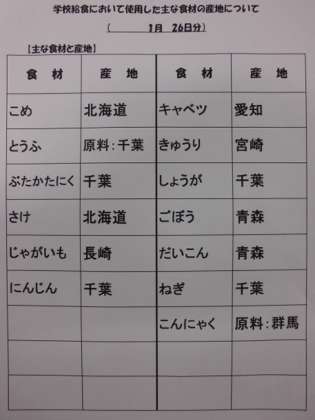 学校給食において使用した主な食材の産地について
（　　　1月　26日分）
【主な食材と産地】
食　材　産　地　食　材　産　地
こめ　北海道　キャベツ　愛知
とうふ　原料：千葉　きゅうり　宮崎
ぶたかたにく　千葉　しょうが　千葉
さけ　北海道　ごぼう　青森
じゃがいも　長崎　だいこん　青森
にんじん　千葉　ねぎ　千葉
こんにゃく　原料：群馬